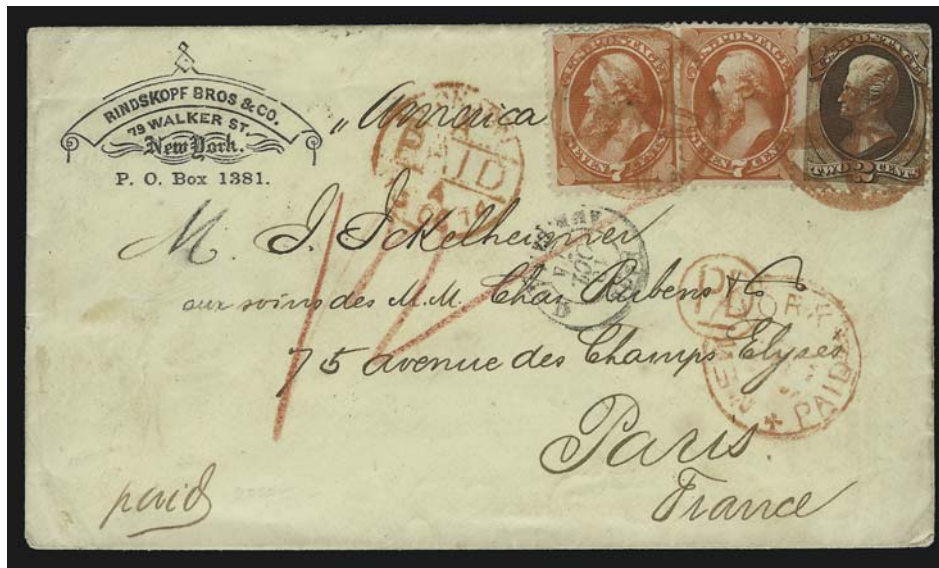 RINDSKOPF BROS & CO.
79 WALKER ST.
New York.
P. O. Box 1381.
„America
U.S. POSTAGE
SEVEN 7 CENTS
U.S. POSTAGE
SEVEN 7 CENTS
U.S. POSTAGE
TWO 2 CENTS
PAID
M. J. Ickelheimer
aux soins des M.M. Chas Rubens & Co
75 avenue des Champs Elyses
PD
NEW YORK
PAID
Paris.
France
paid